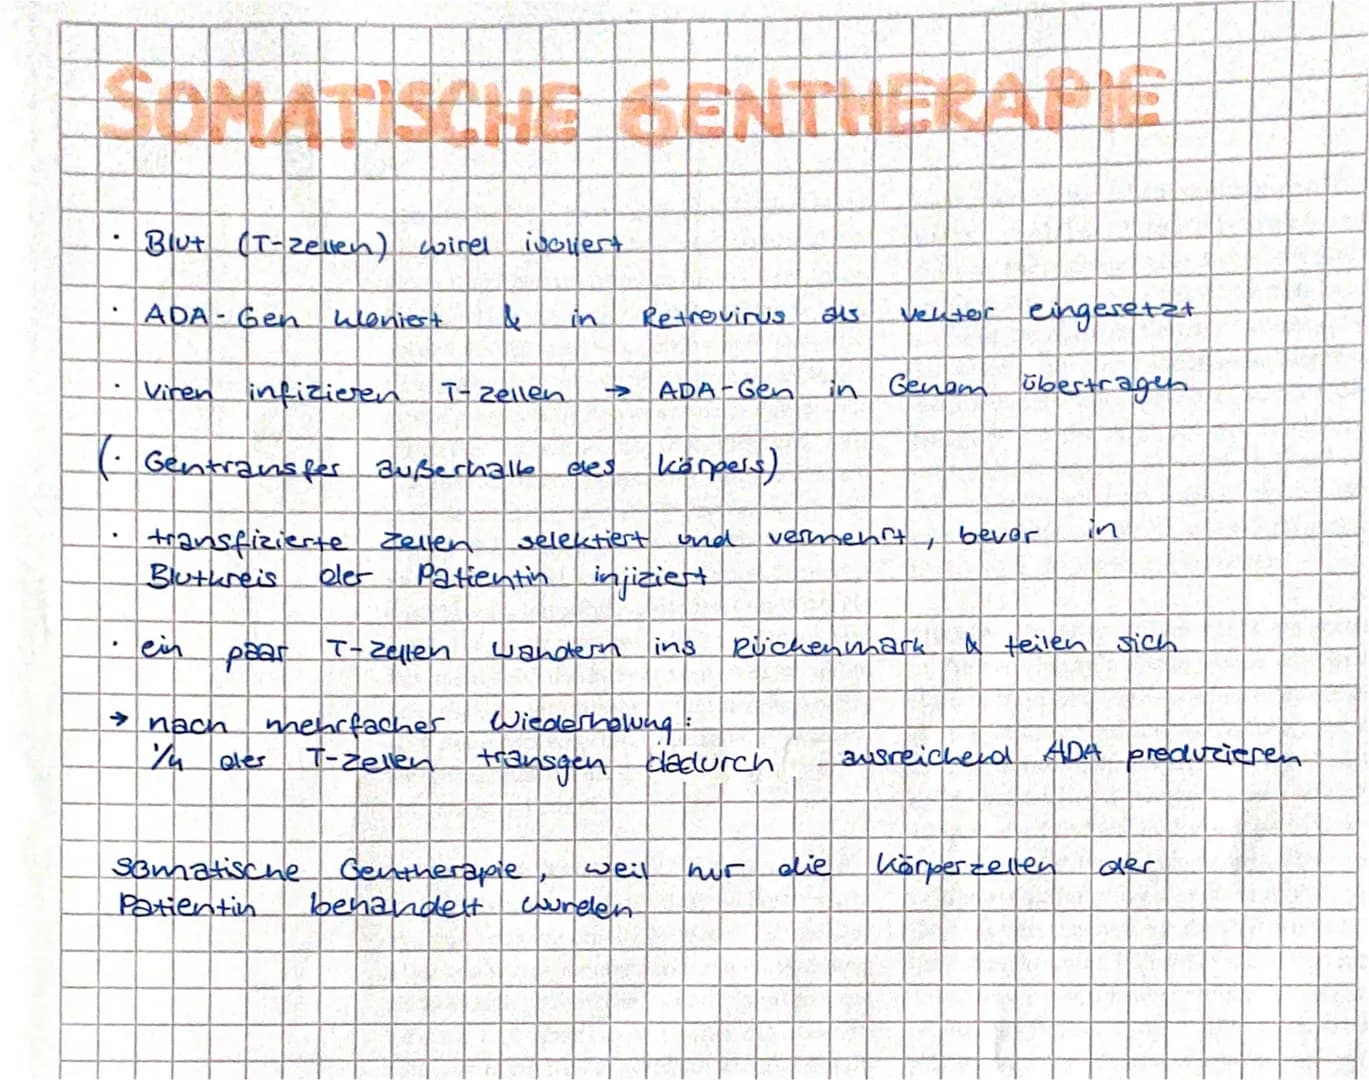 SOMATISCHE GENTHERAPIE
· Blut (T-Zellen) wird isoliert
· ADA-Gen kloniert & in Retrovirus als Vektor eingesetzt
· Viren infizieren T-Zellen → ADA-Gen in Genom übertragen
(· Gentransfer außerhalb des Körpers)
· transfizierte Zellen selektiert und vermehrt, bevor in
Blutkreis der Patientin injiziert
· ein paar T-Zellen wandern ins Rückenmark & teilen sich
→ nach mehrfacher Wiederholung:
1/4 der T-Zellen transgen dadurch ausreichend ADA produzieren
somatische Gentherapie, weil nur die Körperzellen der
Patientin behandelt wurden